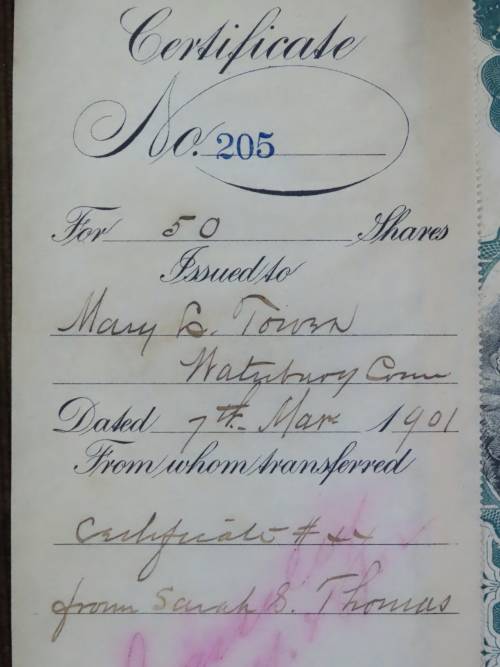 Certificate
No. 205
For 50 Shares
Issued to
Mary L. Tower
Waterbury Conn
Dated 7th Mar 1901
From whom transferred
Certificate # 44
from Sarah S. Thomas